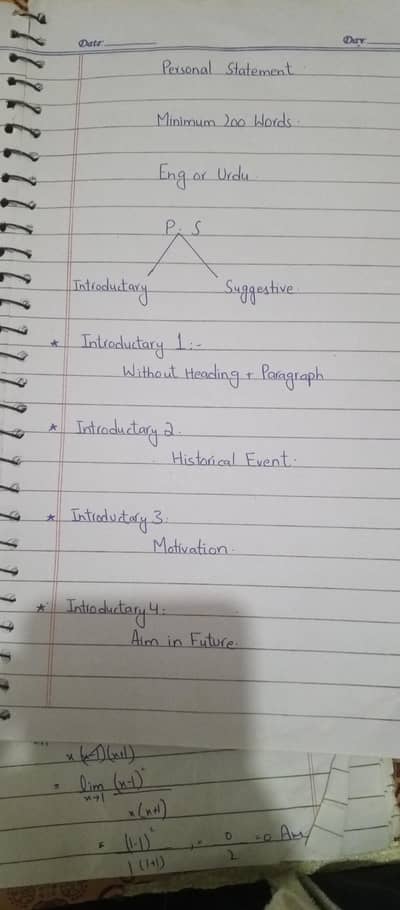 Date
Day
Personal Statement
Minimum 200 Words.
Eng or Urdu.
P. S
Introductary
Suggestive.
* Introductary 1:-
Without Heading + Paragraph
* Introductary 2.
Historical Event.
* Introductary 3.
Motivation.
* Introductary 4:
Aim in Future.
x(x-1)(x+1)
= lim x→1 (x-1)²
x(x+1)
= (1-1)² = 0 = 0 Ans
1(1+1) 2